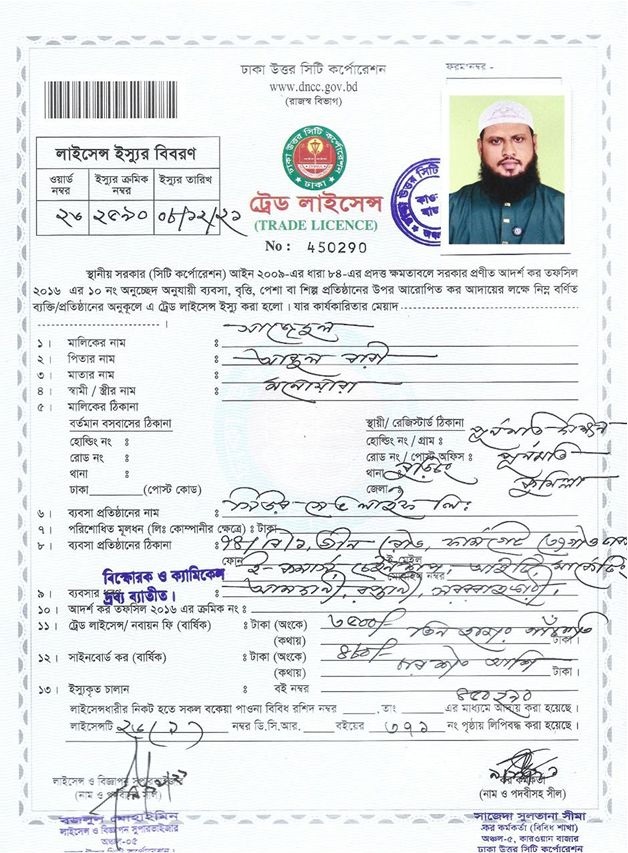 ঢাকা উত্তর সিটি কর্পোরেশন
www.dncc.gov.bd
(রাজস্ব বিভাগ)
ফরম নম্বর -
লাইসেন্স ইস্যুর বিবরণ
ওয়ার্ড নম্বর ইস্যুর ক্রমিক নম্বর ইস্যুর তারিখ
২৬ ২৫৯০ ০৮/১২/২১
ঢাকা উত্তর সিটি কর্পোরেশন
ঢাকা
ট্রেড লাইসেন্স
(TRADE LICENCE)
No : 450290
স্থানীয় সরকার (সিটি কর্পোরেশন) আইন ২০০৯-এর ধারা ৮৪-এর প্রদত্ত ক্ষমতাবলে সরকার প্রণীত আদর্শ কর তফসিল
২০১৬ এর ১০ নং অনুচ্ছেদ অনুযায়ী ব্যবসা, বৃত্তি, পেশা বা শিল্প প্রতিষ্ঠানের উপর আরোপিত কর আদায়ের লক্ষে নিম্ন বর্ণিত
ব্যক্তি/প্রতিষ্ঠানের অনুকূলে এ ট্রেড লাইসেন্স ইস্যু করা হলো। যার কার্যকারিতার মেয়াদ
১। মালিকের নাম :
২। পিতার নাম : আব্দুল বারী
৩। মাতার নাম : মনোয়ারা
৪। স্বামী / স্ত্রীর নাম :
৫। মালিকের ঠিকানা
বর্তমান বসবাসের ঠিকানা স্থায়ী/ রেজিস্টার্ড ঠিকানা
হোল্ডিং নং : হোল্ডিং নং / গ্রাম :
রোড নং : রোড নং / পোস্ট অফিস :
থানা : থানা বুড়িচং
ঢাকা (পোস্ট কোড) জেলা কুমিল্লা
৬। ব্যবসা প্রতিষ্ঠানের নাম : লিঃ
৭। পরিশোধিত মূলধন (লিঃ কোম্পানীর ক্ষেত্রে) : টাকা
৮। ব্যবসা প্রতিষ্ঠানের ঠিকানা : গ্রীন রোড, ফার্মগেট
ফোন ই-মেইল
বিস্ফোরক ও ক্যামিকেল
দ্রব্য ব্যতীত।
৯। ব্যবসার আমদানী, রপ্তানী, সরবরাহকারী
১০। আদর্শ কর তফসিল ২০১৬ এর ক্রমিক নং :
১১। ট্রেড লাইসেন্স/ নবায়ন ফি (বার্ষিক) : টাকা (অংকে) ৩৫০০/-
(কথায়) তিন হাজার পাঁচশত টাকা।
১২। সাইনবোর্ড কর (বার্ষিক) : টাকা (অংকে) ৪৮০/-
(কথায়) চার শত আশি টাকা।
১৩। ইস্যুকৃত চালান : বই নম্বর ৪৫০২৯০
লাইসেন্সধারীর নিকট হতে সকল বকেয়া পাওনা বিবিধ রশিদ নম্বর তাং এর মাধ্যমে আদায় করা হয়েছে।
লাইসেন্সটি ২৬/ নম্বর ডি.সি.আর. বইয়ের ৩৭১ নং পৃষ্ঠায় লিপিবদ্ধ করা হয়েছে।
লাইসেন্স ও বিজ্ঞাপন
(নাম ও পদবীসহ সীল)
লাইসেন্স ও বিজ্ঞাপন সুপারভাইজার
অঞ্চল-০৫
ঢাকা উত্তর সিটি কর্পোরেশন।
কর কর্মকর্তা
(নাম ও পদবীসহ সীল)
সাজেদা সুলতানা সীমা
কর কর্মকর্তা (বিবিধ শাখা)
অঞ্চল-৫, কারওয়ান বাজার
ঢাকা উত্তর সিটি কর্পোরেশন